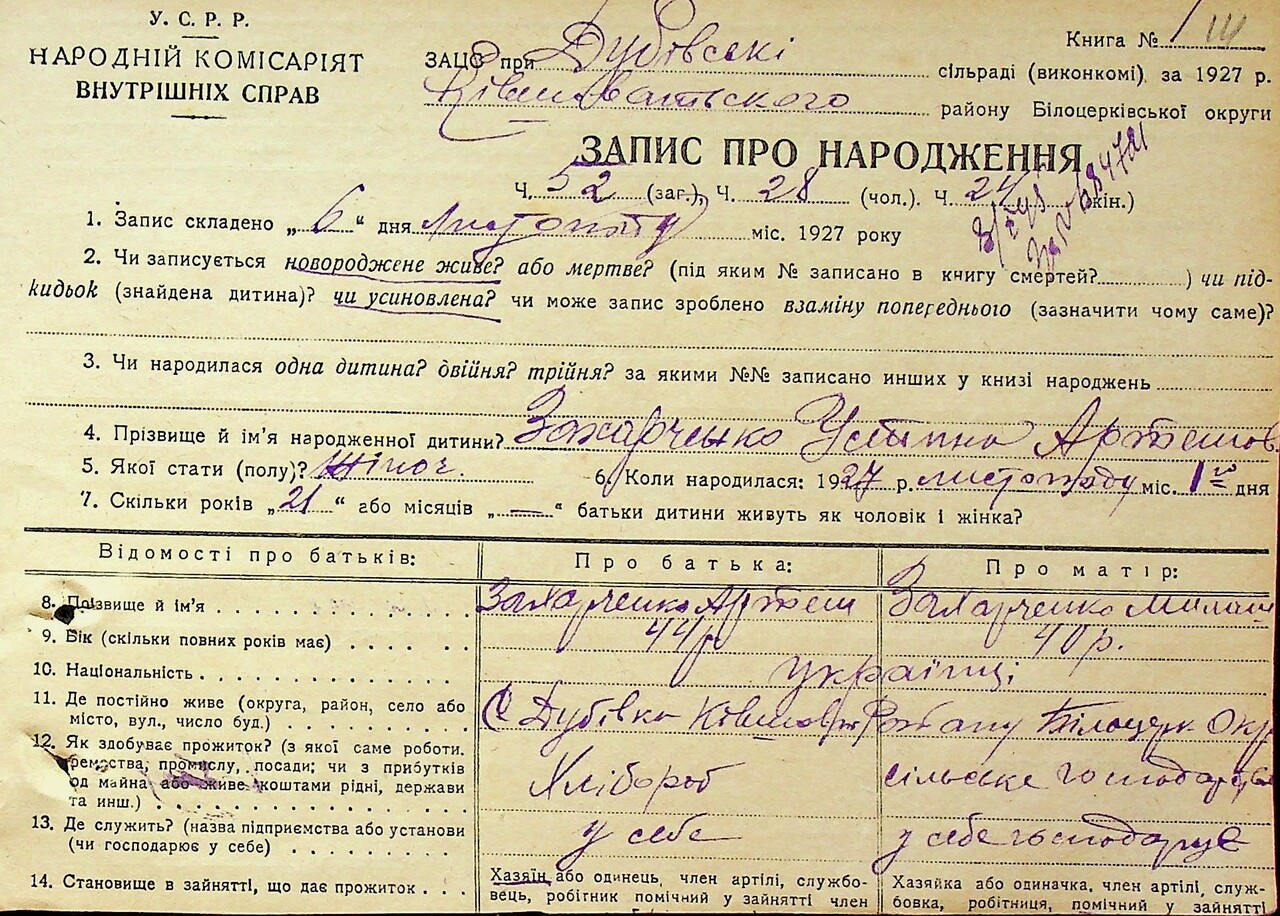 У. С. Р. Р.
НАРОДНІЙ КОМІСАРІЯТ
ВНУТРІШНІХ СПРАВ
Книга № 1
ЗАЦС при Дубівській сільраді (виконкомі), за 1927 р.
Ківшоватського району Білоцерківської округи
ЗАПИС ПРО НАРОДЖЕННЯ
Ч. 52 (заг.), Ч. 28 (чол.). Ч. 24 (жін.)
1. Запис складено „ 6 “ дня листопаду міс. 1927 року
2. Чи записується новороджене живе? або мертве? (під яким № записано в книгу смертей?) чи під-
кидьок (знайдена дитина)? чи усиновлена? чи може запис зроблено взаміну попереднього (зазначити чому саме)?
3. Чи народилася одна дитина? двійня? трійня? за якими №№ записано инших у книзі народжень
4. Прізвище й ім’я народженної дитини? Захарченко Устина Артемов.
5. Якої стати (полу)? жіноч. 6. Коли народилася: 1927 р. листопаду міс. 1го дня
7. Скільки років „ 21 “ або місяців „ — “ батьки дитини живуть як чоловік і жінка?
Відомості про батьків: Про батька: Про матір:
8. Прізвище й ім’я Захарченко Артем Захарченко
9. Вік (скільки повних років має) 44 р. 40 р.
10. Національність українці
11. Де постійно живе (округа, район, село або
місто, вул., число буд.) С Дубівка Білоцерк Окр
12. Як здобуває прожиток? (з якої саме роботи.
ремества, промислу, посади; чи з прибутків
од майна або живе коштами рідні, держави
та инш.) Хлібороб сільське господарство
13. Де служить? (назва підприємства або установи
(чи господарює у себе) у себе у себе господарує
14. Становище в зайнятті, що дає прожиток
Хазяїн або одинець, член артілі, службо-
вець, робітник помічний у зайнятті член
Хазяйка або одиначка, член артілі, служ-
бовка, робітниця, помічний у зайнятті